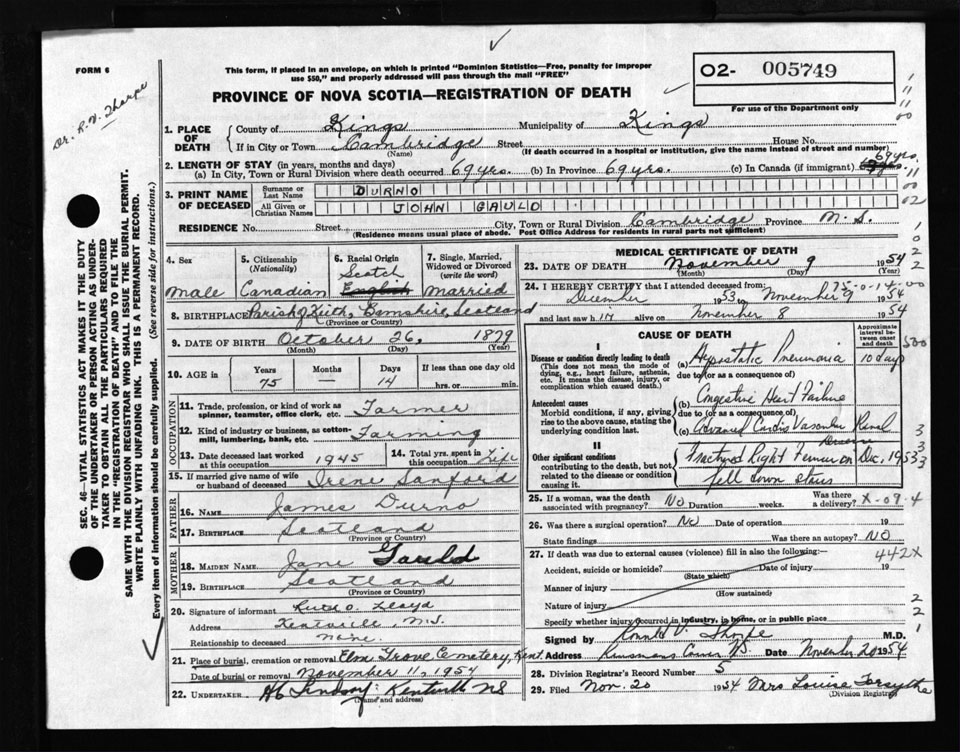 FORM 6
Dr. R. V. Thorpe
This form, if placed in an envelope, on which is printed "Dominion Statistics—Free, penalty for improper
use $50," and properly addressed will pass through the mail "FREE"
PROVINCE OF NOVA SCOTIA—REGISTRATION OF DEATH
O2- 005749
For use of the Department only
SEC. 46—VITAL STATISTICS ACT MAKES IT THE DUTY
OF THE UNDERTAKER OR PERSON ACTING AS UNDER-
TAKER TO OBTAIN ALL THE PARTICULARS REQUIRED
IN THE "REGISTRATION OF DEATH" AND TO FILE THE
SAME WITH THE DIVISION REGISTRAR WHO SHALL ISSUE THE BURIAL PERMIT.
WRITE PLAINLY WITH UNFADING INK. THIS IS A PERMANENT RECORD.
Every item of information should be carefully supplied. (See reverse side for instructions.)
1. PLACE OF DEATH County of Kings Municipality of Kings
If in City or Town Cambridge Street House No.
(Name) (If death occurred in a hospital or institution, give the name instead of street and number)
2. LENGTH OF STAY (in years, months and days) 69 yrs.
(a) In City, Town or Rural Division where death occurred 69 yrs. (b) In Province 69 yrs. (c) In Canada (if immigrant)
3. PRINT NAME OF DECEASED Surname or Last Name DURNO
All Given or Christian Names JOHN GAULD
RESIDENCE No. Street City, Town or Rural Division Cambridge Province N.S.
(Residence means usual place of abode. Post Office Address for residents in rural parts not sufficient)
4. Sex Male
5. Citizenship (Nationality) Canadian
6. Racial Origin Scotch English
7. Single, Married, Widowed or Divorced (write the word) Married
8. BIRTHPLACE Parish of Keith, Bamshire, Scotland
(Province or Country)
9. DATE OF BIRTH October 26, 1879
(Month) (Day) (Year)
10. AGE in Years 75 Months — Days 14 If less than one day old hrs. or min.
OCCUPATION
11. Trade, profession, or kind of work as spinner, teamster, office clerk, etc. Farmer
12. Kind of industry or business, as cotton-mill, lumbering, bank, etc. Farming
13. Date deceased last worked at this occupation 1945 14. Total yrs. spent in this occupation Life
15. If married give name of wife or husband of deceased Irene Sanford
FATHER
16. NAME James Durno
17. BIRTHPLACE Scotland
(Province or Country)
MOTHER
18. MAIDEN NAME Jane Gauld
19. BIRTHPLACE Scotland
(Province or Country)
20. Signature of informant Ruth O. Lloyd
Address Kentville, N.S.
Relationship to deceased None.
21. Place of burial, cremation or removal Elm Grove Cemetery, Kent.
Date of burial or removal November 11, 1954
22. UNDERTAKER Lindsay, Kentville NS
(Name and address)
MEDICAL CERTIFICATE OF DEATH
23. DATE OF DEATH November 9 1954
(Month) (Day) (Year)
75-0-14-00
24. I HEREBY CERTIFY that I attended deceased from:
December 1953, to November 9 1954
and last saw him alive on November 8 1954
CAUSE OF DEATH
Approximate interval between onset and death
I
Disease or condition directly leading to death
(This does not mean the mode of dying, e.g., heart failure, asthenia, etc. It means the disease, injury, or complication which caused death.)
(a) Hypostatic Pneumonia 10 days
due to (or as a consequence of)
Antecedent causes
Morbid conditions, if any, giving rise to the above cause, stating the underlying condition last.
(b) Congestive Heart Failure
due to (or as a consequence of)
(c) Advanced Cardio Vascular Renal Disease
II
Other significant conditions
contributing to the death, but not related to the disease or condition causing it.
Fractured Right Femur on Dec. 1953
fell down stairs
25. If a woman, was the death associated with pregnancy? No Duration weeks. Was there a delivery? X-09-4
26. Was there a surgical operation? No Date of operation 19
State findings Was there an autopsy? NO
27. If death was due to external causes (violence) fill in also the following:— 442X
Accident, suicide or homicide? Date of injury 19
(State which)
Manner of injury
(How sustained)
Nature of injury
Specify whether injury occurred in industry, in home, or in public place
Signed by Ronald V. Thorpe M.D.
Address Kinsmans Corner NS. Date November 20 1954
28. Division Registrar's Record Number 5
29. Filed Nov. 20 1954 Mrs Louise Forsythe
(Division Registrar)